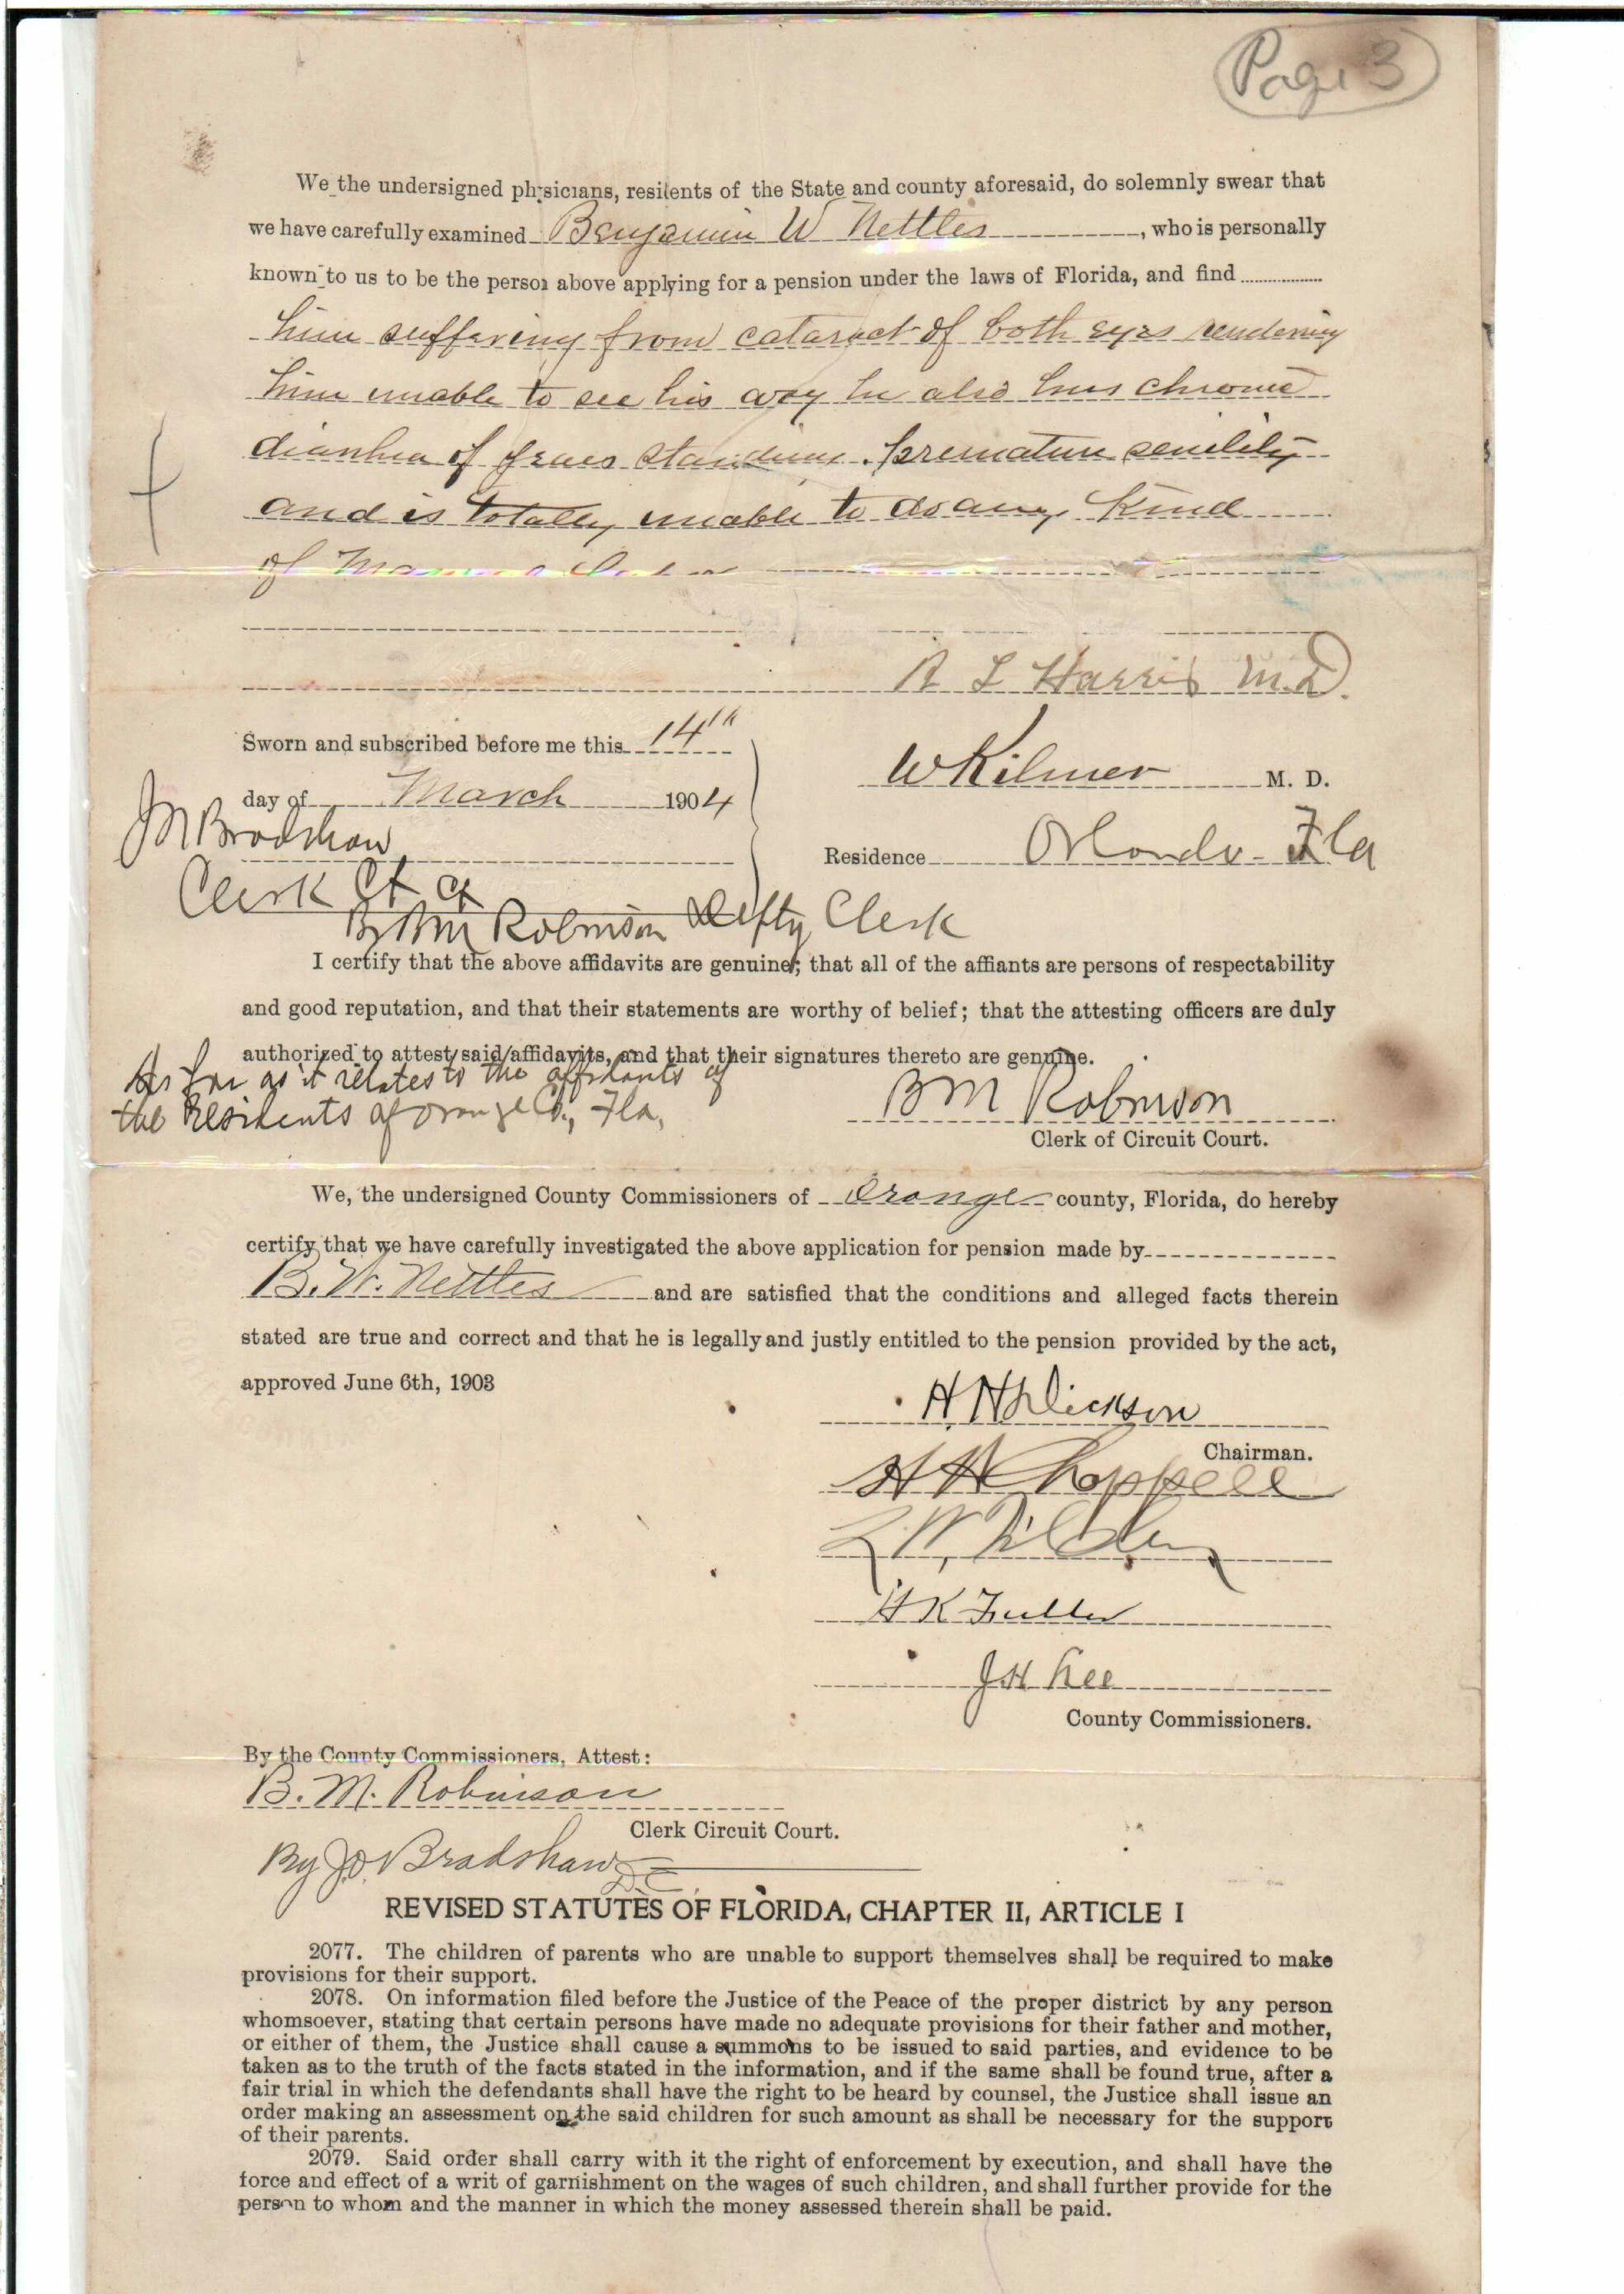 Page 3
We the undersigned physicians, residents of the State and county aforesaid, do solemnly swear that
we have carefully examined Benjamin W Nettles, who is personally
known to us to be the person above applying for a pension under the laws of Florida, and find
him suffering from cataract of both eyes rendering
him unable to see his way he also has chronic
diarrhea of years standing. premature senility
and is totally unable to do any kind
of
R L Harris M.D.
Sworn and subscribed before me this 14th
W Kilmer M. D.
day of March 1904
J M Bradshaw
Residence Orlando Fla
Clerk Ct Ct
By B M Robinson Depty Clerk
I certify that the above affidavits are genuine; that all of the affiants are persons of respectability
and good reputation, and that their statements are worthy of belief; that the attesting officers are duly
authorized to attest said affidavits, and that their signatures thereto are genuine.
As far as it relates to the affidants of
the Residents of Orange Co, Fla,
B M Robinson
Clerk of Circuit Court.
We, the undersigned County Commissioners of Orange county, Florida, do hereby
certify that we have carefully investigated the above application for pension made by
B. W. Nettles and are satisfied that the conditions and alleged facts therein
stated are true and correct and that he is legally and justly entitled to the pension provided by the act,
approved June 6th, 1903
H H Dickson
Chairman.
H H Chappell
L W Tilden
H K Fuller
J H Lee
County Commissioners.
By the County Commissioners, Attest:
B. M. Robinson
Clerk Circuit Court.
By J. O. Bradshaw
D.C.
REVISED STATUTES OF FLORIDA, CHAPTER II, ARTICLE I
2077. The children of parents who are unable to support themselves shall be required to make
provisions for their support.
2078. On information filed before the Justice of the Peace of the proper district by any person
whomsoever, stating that certain persons have made no adequate provisions for their father and mother,
or either of them, the Justice shall cause a summons to be issued to said parties, and evidence to be
taken as to the truth of the facts stated in the information, and if the same shall be found true, after a
fair trial in which the defendants shall have the right to be heard by counsel, the Justice shall issue an
order making an assessment on the said children for such amount as shall be necessary for the support
of their parents.
2079. Said order shall carry with it the right of enforcement by execution, and shall have the
force and effect of a writ of garnishment on the wages of such children, and shall further provide for the
person to whom and the manner in which the money assessed therein shall be paid.